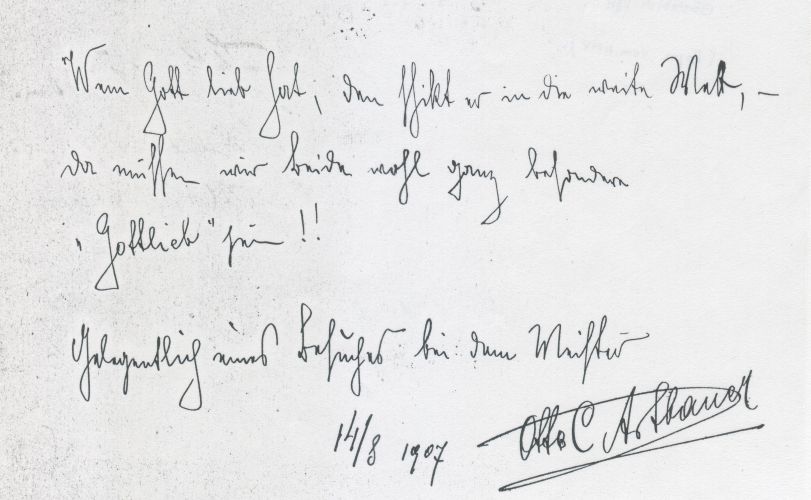 Wem Gott lieb hat, den schikt er in die weite Welt, –
da müssen wir beide wohl ganz besonders
„Gottlieb" sein !!
Gelegentlich eines Besuches bei dem Meister
14/8 1907 Otto C Artbauer